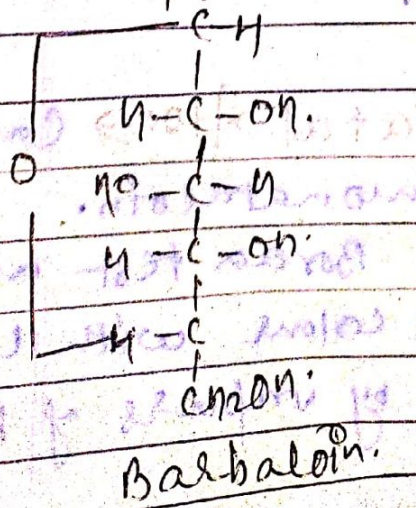 C-H
H-C-OH.
O
HO-C-H
H-C-OH.
H-C
CH2OH.
Barbaloin.